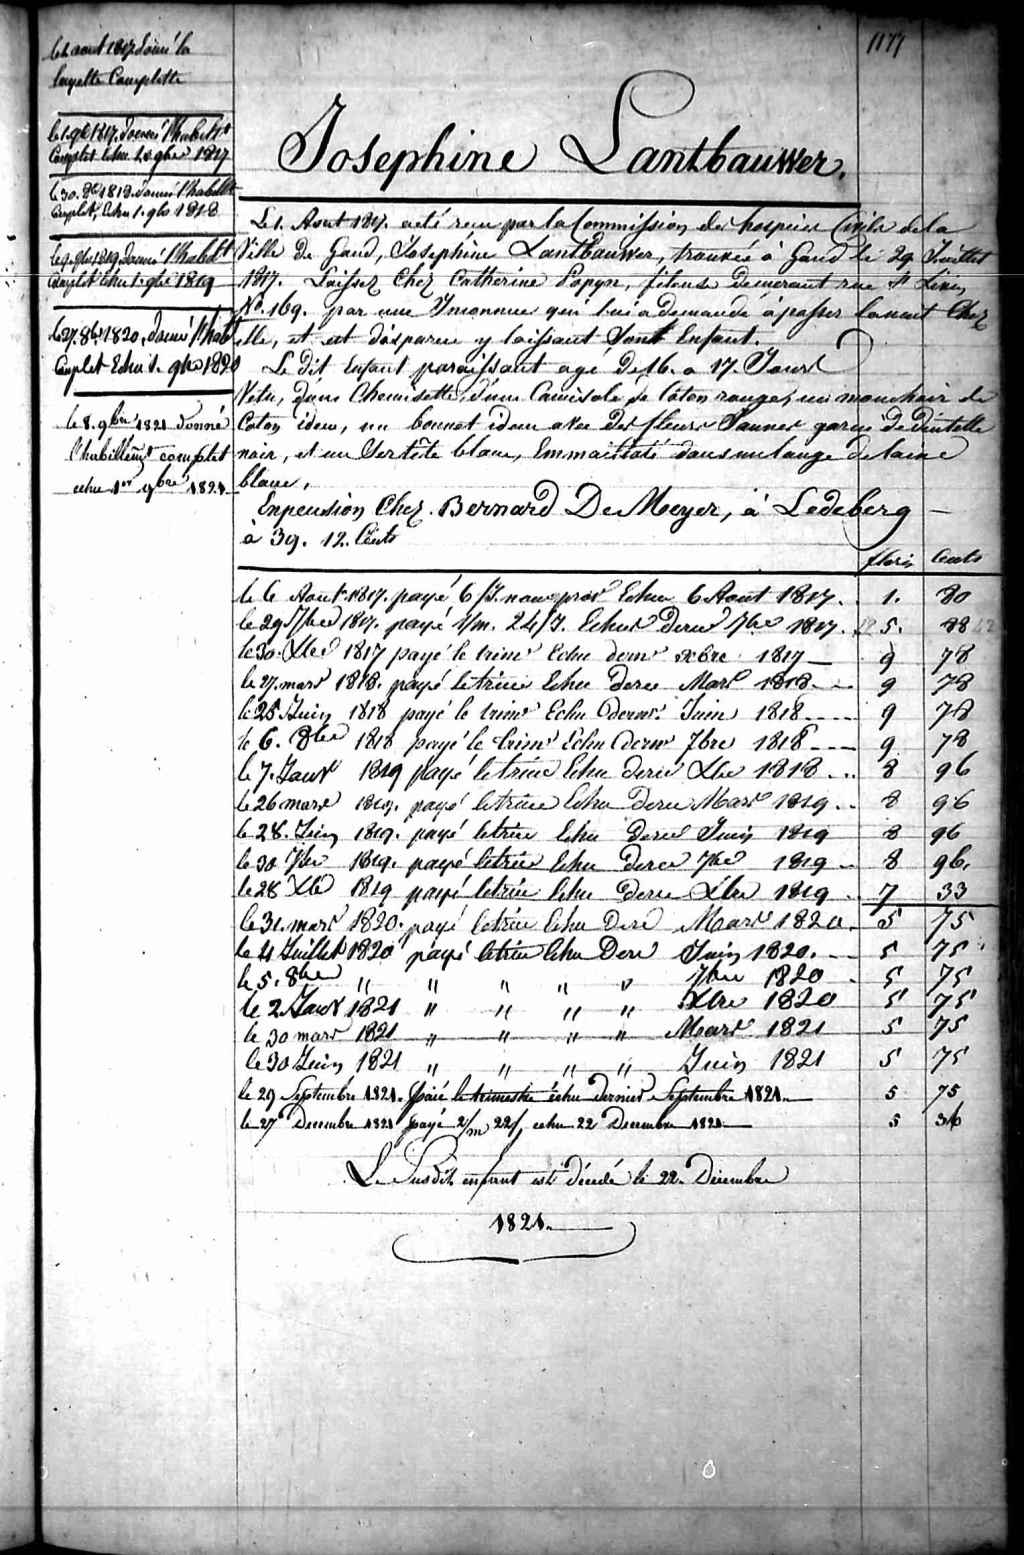 le 1 aout 1817 donné la
layette Complette
le 1. 9bre 1817. donné l'habillt
Complet Echu 1. 9bre 1817
le 30. 8bre 1818. donné l'habillt
Complet, Echu 1. 9bre 1818
1819 donné l'habillt
Complet Echu 1. 9bre 1819
le 27. 8bre 1820, donné l'habt
Complet Echu 1. 9bre 1820
le 8. 9bre 1821 donné
l'habillemt complet
echu 1er 9bre 1821.
1177
Josephine Lantbauwer.
Le 1. Aout 1817. a été reçu par la Commission des hospices Civils de la
Ville de Gand, Josephine Lantbauwer, trouvée à Gand le 29 Juillet
1817. Laissez Chez Catherine Papyn, fileuse demeurant rue St Lievin
No. 169. par une Inconnue qui lui a demandé à passer la nuit Chez
elle, et est disparue y laissant Enfant.
Le Dit Enfant paraissant agé De 16. a 17. Jours
Vetu, d'une Chemisette, d'une Camisole de Coton rouge, un mouchoir de
Coton idem, un bonnet idem avec Des fleurs Jaunes garni De Dintelle
noir, et un Sertête blanc, Emmailloté dans un lange de laine
blanc,
En pension Chez. Bernard De Meyer, à Ledeberg
à 39. 12. Cents
florin Cents
le 6 Aout 1817. payé 6/J. Echu 6 Aout 1817. 1. 80
le 29 7bre 1817. payé 1/m. 24/J. Echus dernr 7bre 1817. 5. 88
le 30. Xbre 1817 payé le trimr Echu dernr xbre 1817 9 78
le 27. mars 1818. payé le trime Echu derne Mars 1818 9 78
le 25 Juin 1818 payé le trimr Echu dernr. Juin 1818 9 78
le 6. 8bre 1818 payé le trimr Echu dernr 7bre 1818 9 78
le 7. Janvr 1819 payé le trime Echu derne Xbre 1818 8 96
le 26 mars 1819. payé le trime Echu derne Mars 1819 8 96
le 28. Juin 1819. payé le trime Echu derne Juin 1819 8 96
le 30 7bre 1819. payé le trime Echu derne 7bre 1819 8 96.
le 28 Xbre 1819 payé le trime Echu derne Xbre 1819 7 33
le 31. mars 1820. payé le trime Echu Dere Mars 1820. 5 75
le 4 Juillet 1820 payé le trime Echu Dere Juin 1820. 5 75
le 5. 8bre " " " " 7bre 1820 5 75
le 2 Janvr 1821 " " " " Xbre 1820 5 75
le 30 mars 1821 " " " " Mars 1821 5 75
le 30 Juin 1821 " " " " Juin 1821 5 75
le 29 Septembre 1821. Paié le trimestre échu dernier Septembre 1821. 5 75
le 27 Decembre 1821 payé 2/m 22/J echu 22 Decembre 1821 5 36
Le Susdit enfant est décedé le 22. Décembre
1821.